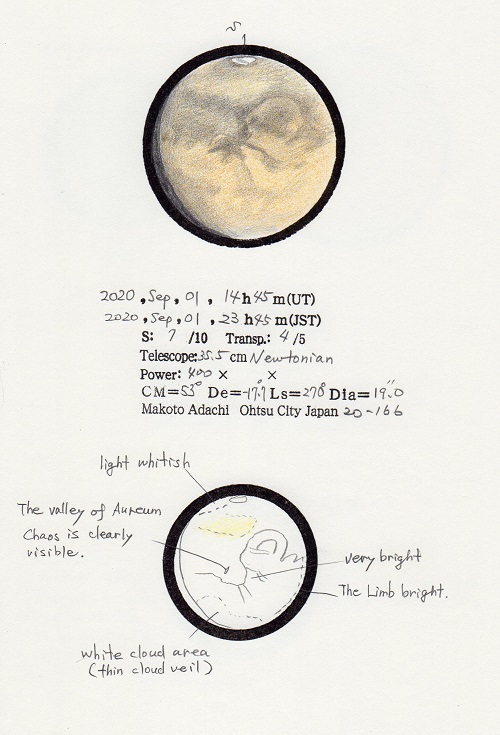 S
2020, Sep, 01, 14h 45m (UT)
2020, Sep, 01, 23h 45m (JST)
S: 7 /10 Transp.: 4 /5
Telescope: 35.5 cm Newtonian
Power: 400 × ×
CM=53° De=-17.°7 Ls=270° Dia=19."0
Makoto Adachi Ohtsu City Japan 20-166
light whitish
The valley of Aureum
Chaos is clearly
visible.
very bright
The Limb bright.
white cloud area
(thin cloud veil)